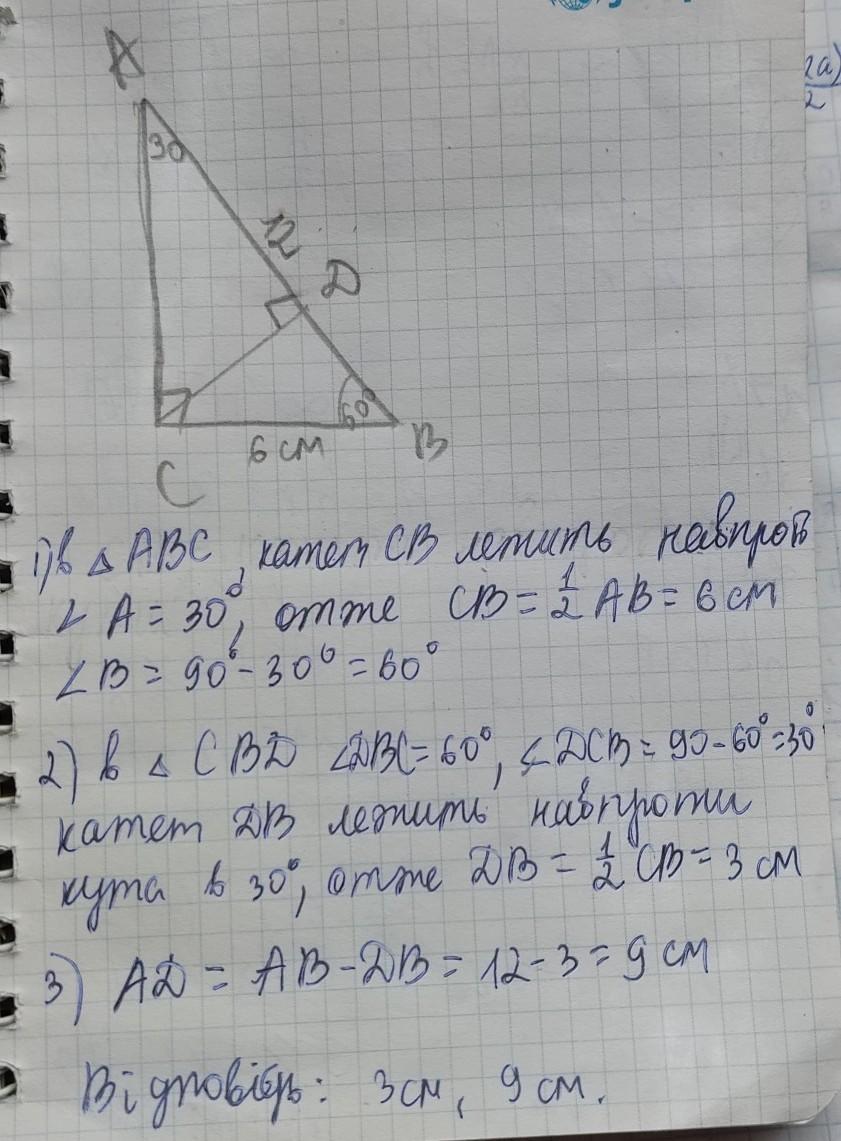 2a)
2
A
30
12
D
60°
6 см
B
C
1) в △ ABC, катет CB лежить навпроти
∠ A = 30°, отже CB = 1/2 AB = 6 см
∠B = 90° - 30° = 60°
2) в △ CBD ∠DBC = 60°, ∠DCB = 90 - 60° = 30°
катет DB лежить навпроти
кута в 30°, отже DB = 1/2 CB = 3 см
3) AD = AB - DB = 12 - 3 = 9 см
Відповідь: 3 см, 9 см.